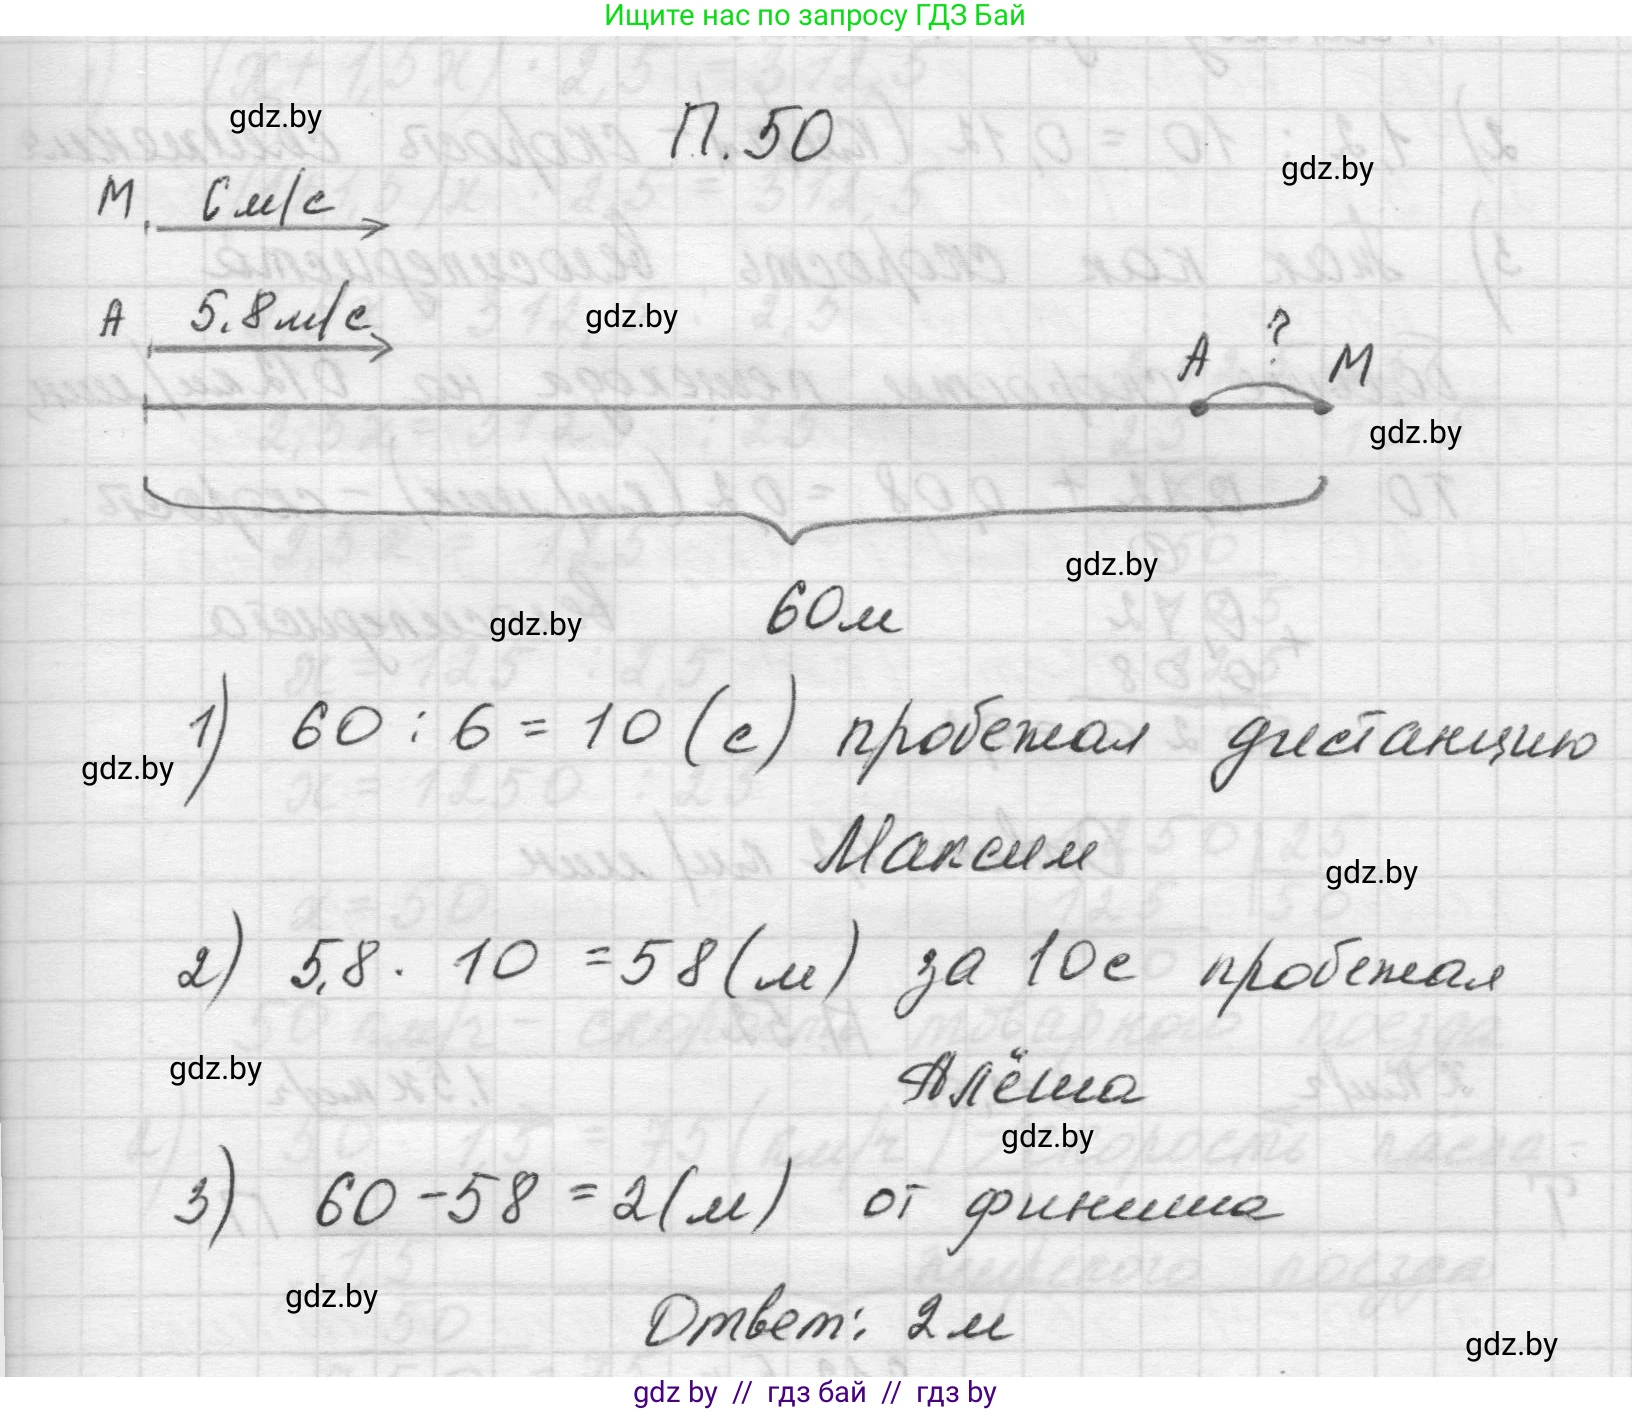 Ищите нас по запросу ГДЗ Бай
gdz.by
П.50
gdz.by
М 6 м/с
А 5,8 м/с
gdz.by
А ? М
gdz.by
gdz.by
60м
gdz.by
1) 60 : 6 = 10 (с) пробежал дистанцию
gdz.by
Максим
gdz.by
2) 5,8 · 10 = 58 (м) за 10с пробежал
gdz.by
Алёша
gdz.by
3) 60 - 58 = 2 (м) от финиша
gdz.by
Ответ: 2 м
gdz.by
gdz by // гдз бай // гдз by